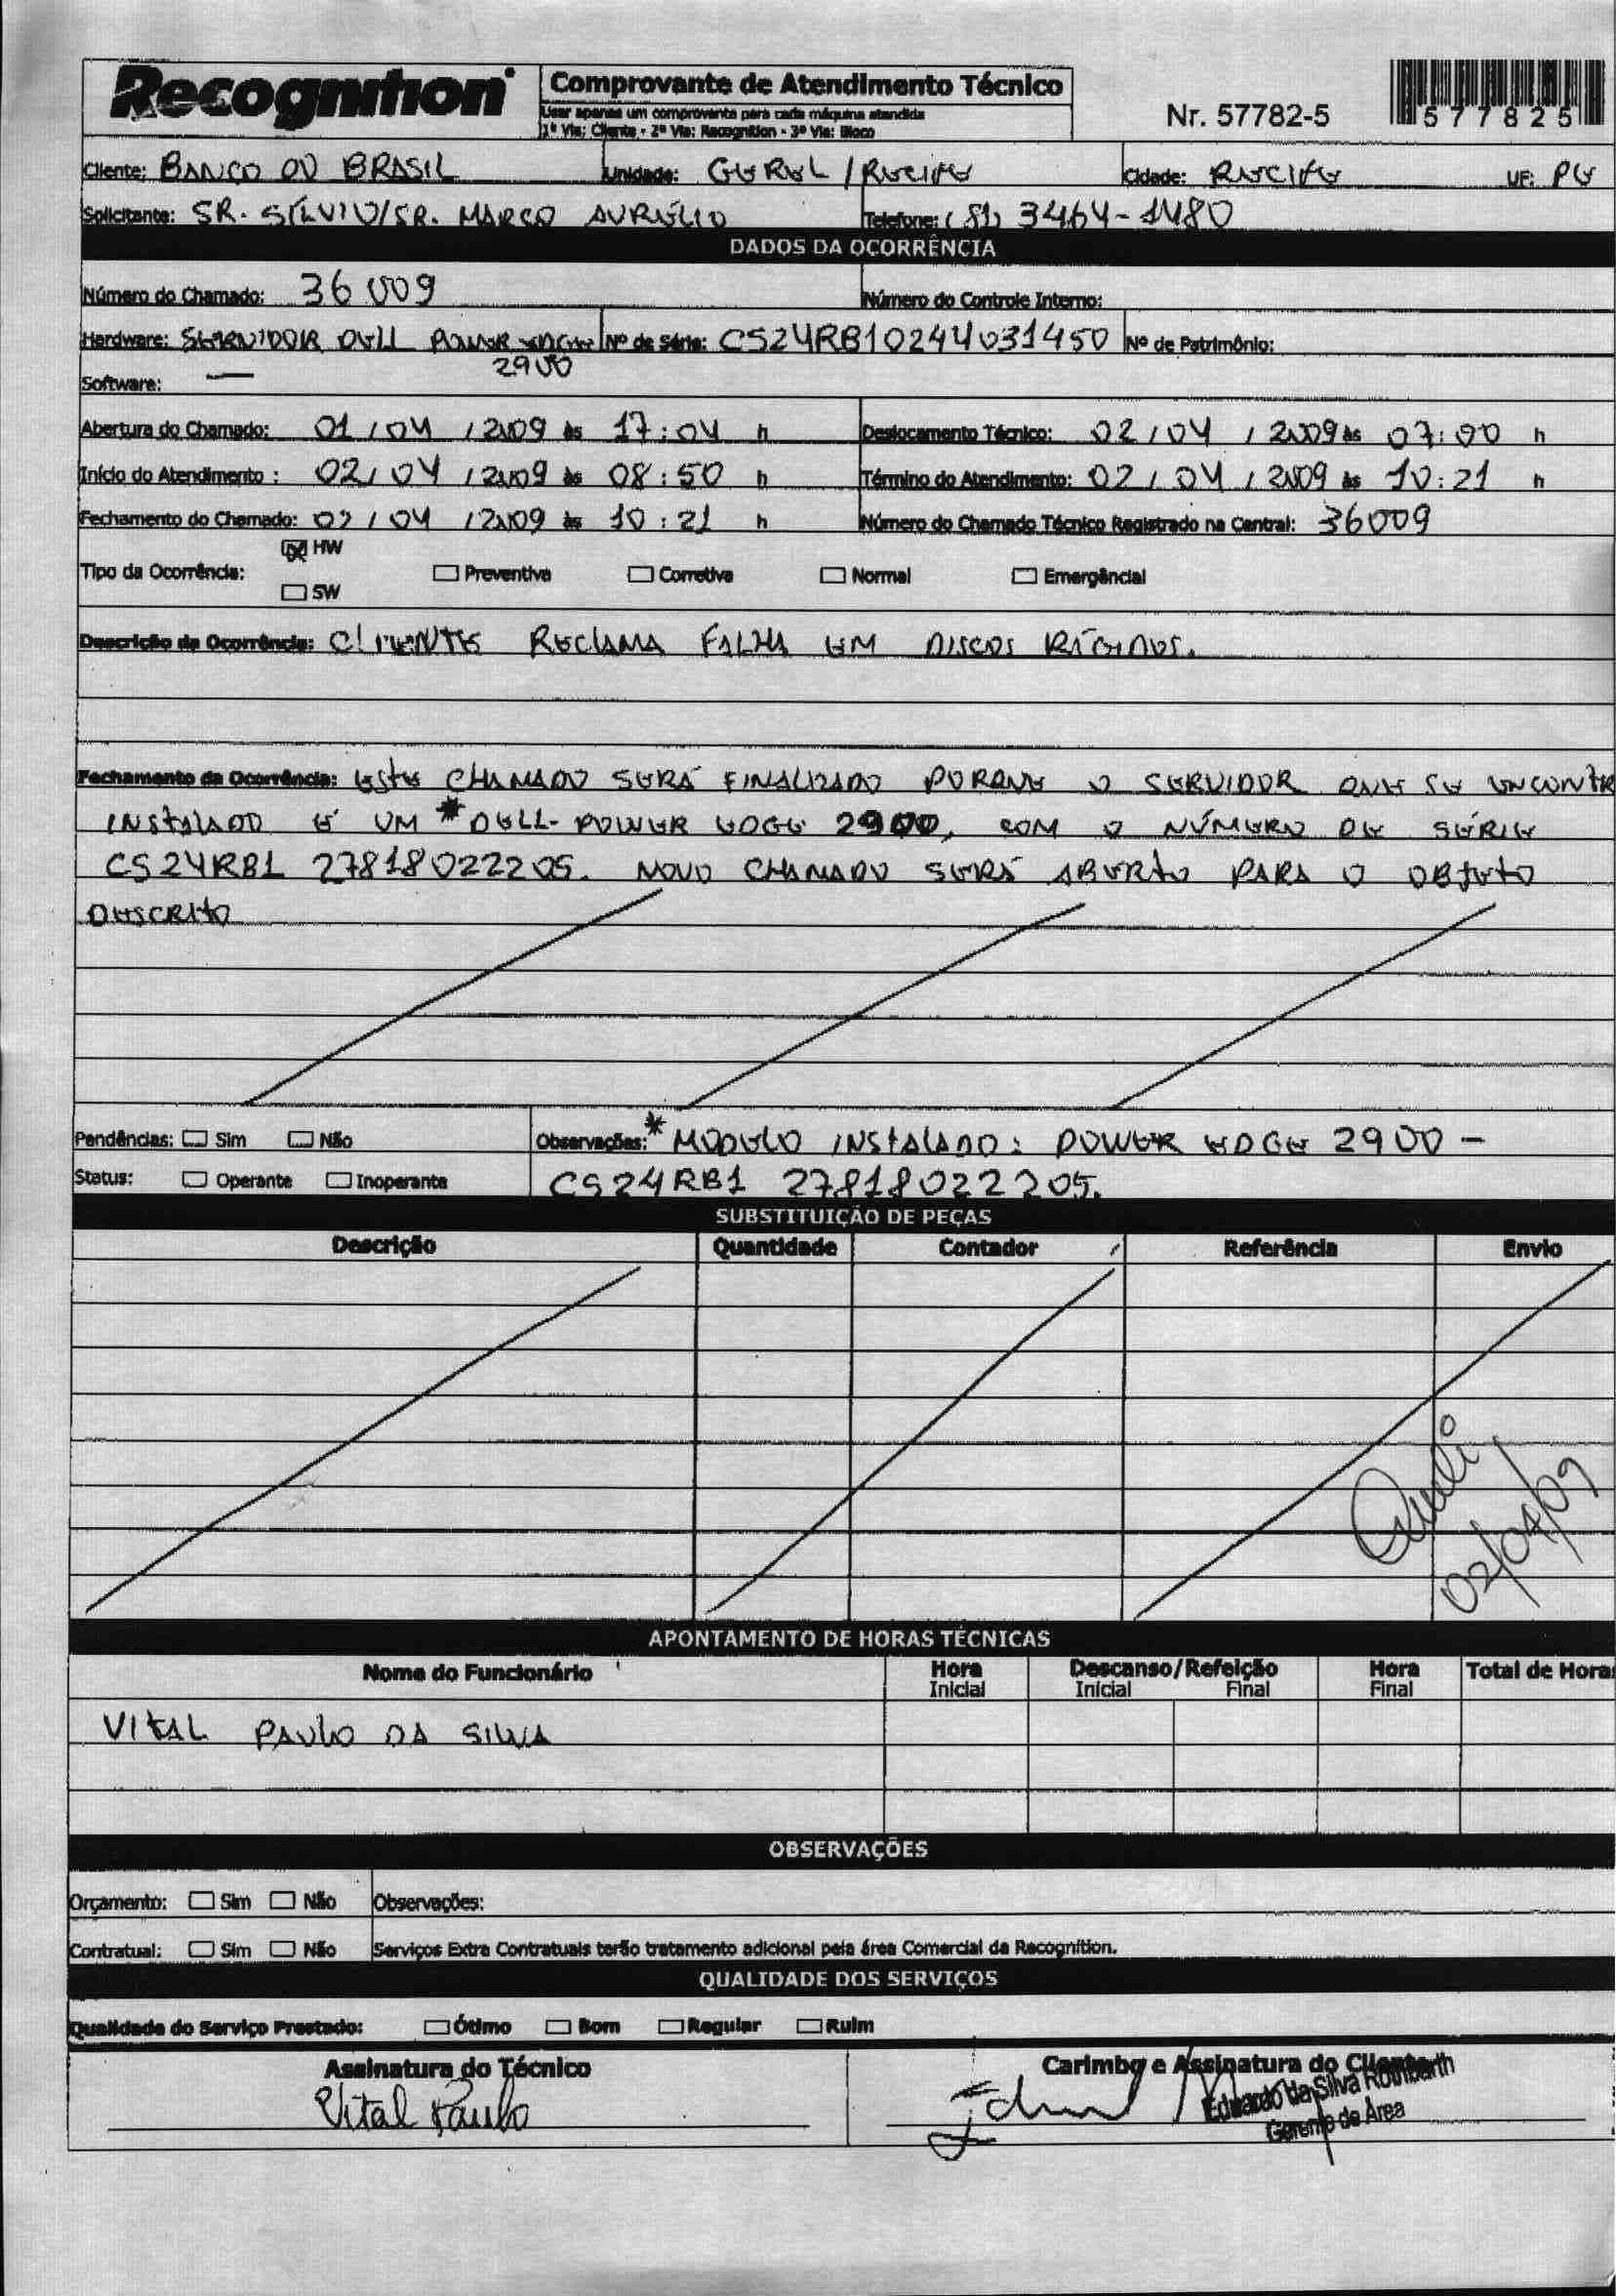 Recognition
Comprovante de Atendimento Técnico
Usar apenas um comprovante para cada máquina atendida
1ª Via: Cliente - 2ª Via: Recognition - 3ª Via: Bloco
Nr. 57782-5
577825
Cliente: BANCO DO BRASIL Unidade: GEREL / RECIFE Cidade: RECIFE UF: PE
Solicitante: SR. SÍLVIO/SR. MARCO AURÉLIO Telefone: (81) 3464-1480
DADOS DA OCORRÊNCIA
Número do Chamado: 36009 Número do Controle Interno:
Hardware: SERVIDOR DELL POWER EDGE Nº de Série: CS24RB10244031450 Nº de Patrimônio:
2900
Software: —
Abertura do Chamado: 01/04/2009 às 17:04 h Deslocamento Técnico: 02/04/2009 às 07:00 h
Início do Atendimento: 02/04/2009 às 08:50 h Término do Atendimento: 02/04/2009 às 10:21 h
Fechamento do Chamado: 02/04/2009 às 10:21 h Número do Chamado Técnico Registrado na Central: 36009
Tipo da Ocorrência: HW SW Preventiva Corretiva Normal Emergêncial
Descrição da Ocorrência: CLIENTE RECLAMA FALHA EM DISCOS RÍGIDOS.
Fechamento da Ocorrência: ESTE CHAMADO SERÁ FINALIZADO PORQUE O SERVIDOR QUE SE ENCONTR
INSTALADO É UM * DELL-POWER EDGE 2900, COM O NÚMERO DE SÉRIE
CS24RB1 27818022205. NOVO CHAMADO SERÁ ABERTO PARA O OBJETO
DESCRITO
Pendências: Sim Não Observações: * MODELO INSTALADO: POWER EDGE 2900 -
Status: Operante Inoperante CS24RB1 27818022205.
SUBSTITUIÇÃO DE PEÇAS
Descrição Quantidade Contador Referência Envio
02/04/09
APONTAMENTO DE HORAS TÉCNICAS
Nome do Funcionário Hora Inicial Descanso/Refeição Inicial Final Hora Final Total de Hora
VITAL PAULO DA SILVA
OBSERVAÇÕES
Orçamento: Sim Não Observações:
Contratual: Sim Não Serviços Extra Contratuais terão tratamento adicional pela área Comercial da Recognition.
QUALIDADE DOS SERVIÇOS
Qualidade do Serviço Prestado: Ótimo Bom Regular Ruim
Assinatura do Técnico Carimbo e Assinatura do Cliente
Vital Paulo
Eduardo da Silva Rothbarth
Gerente de Área